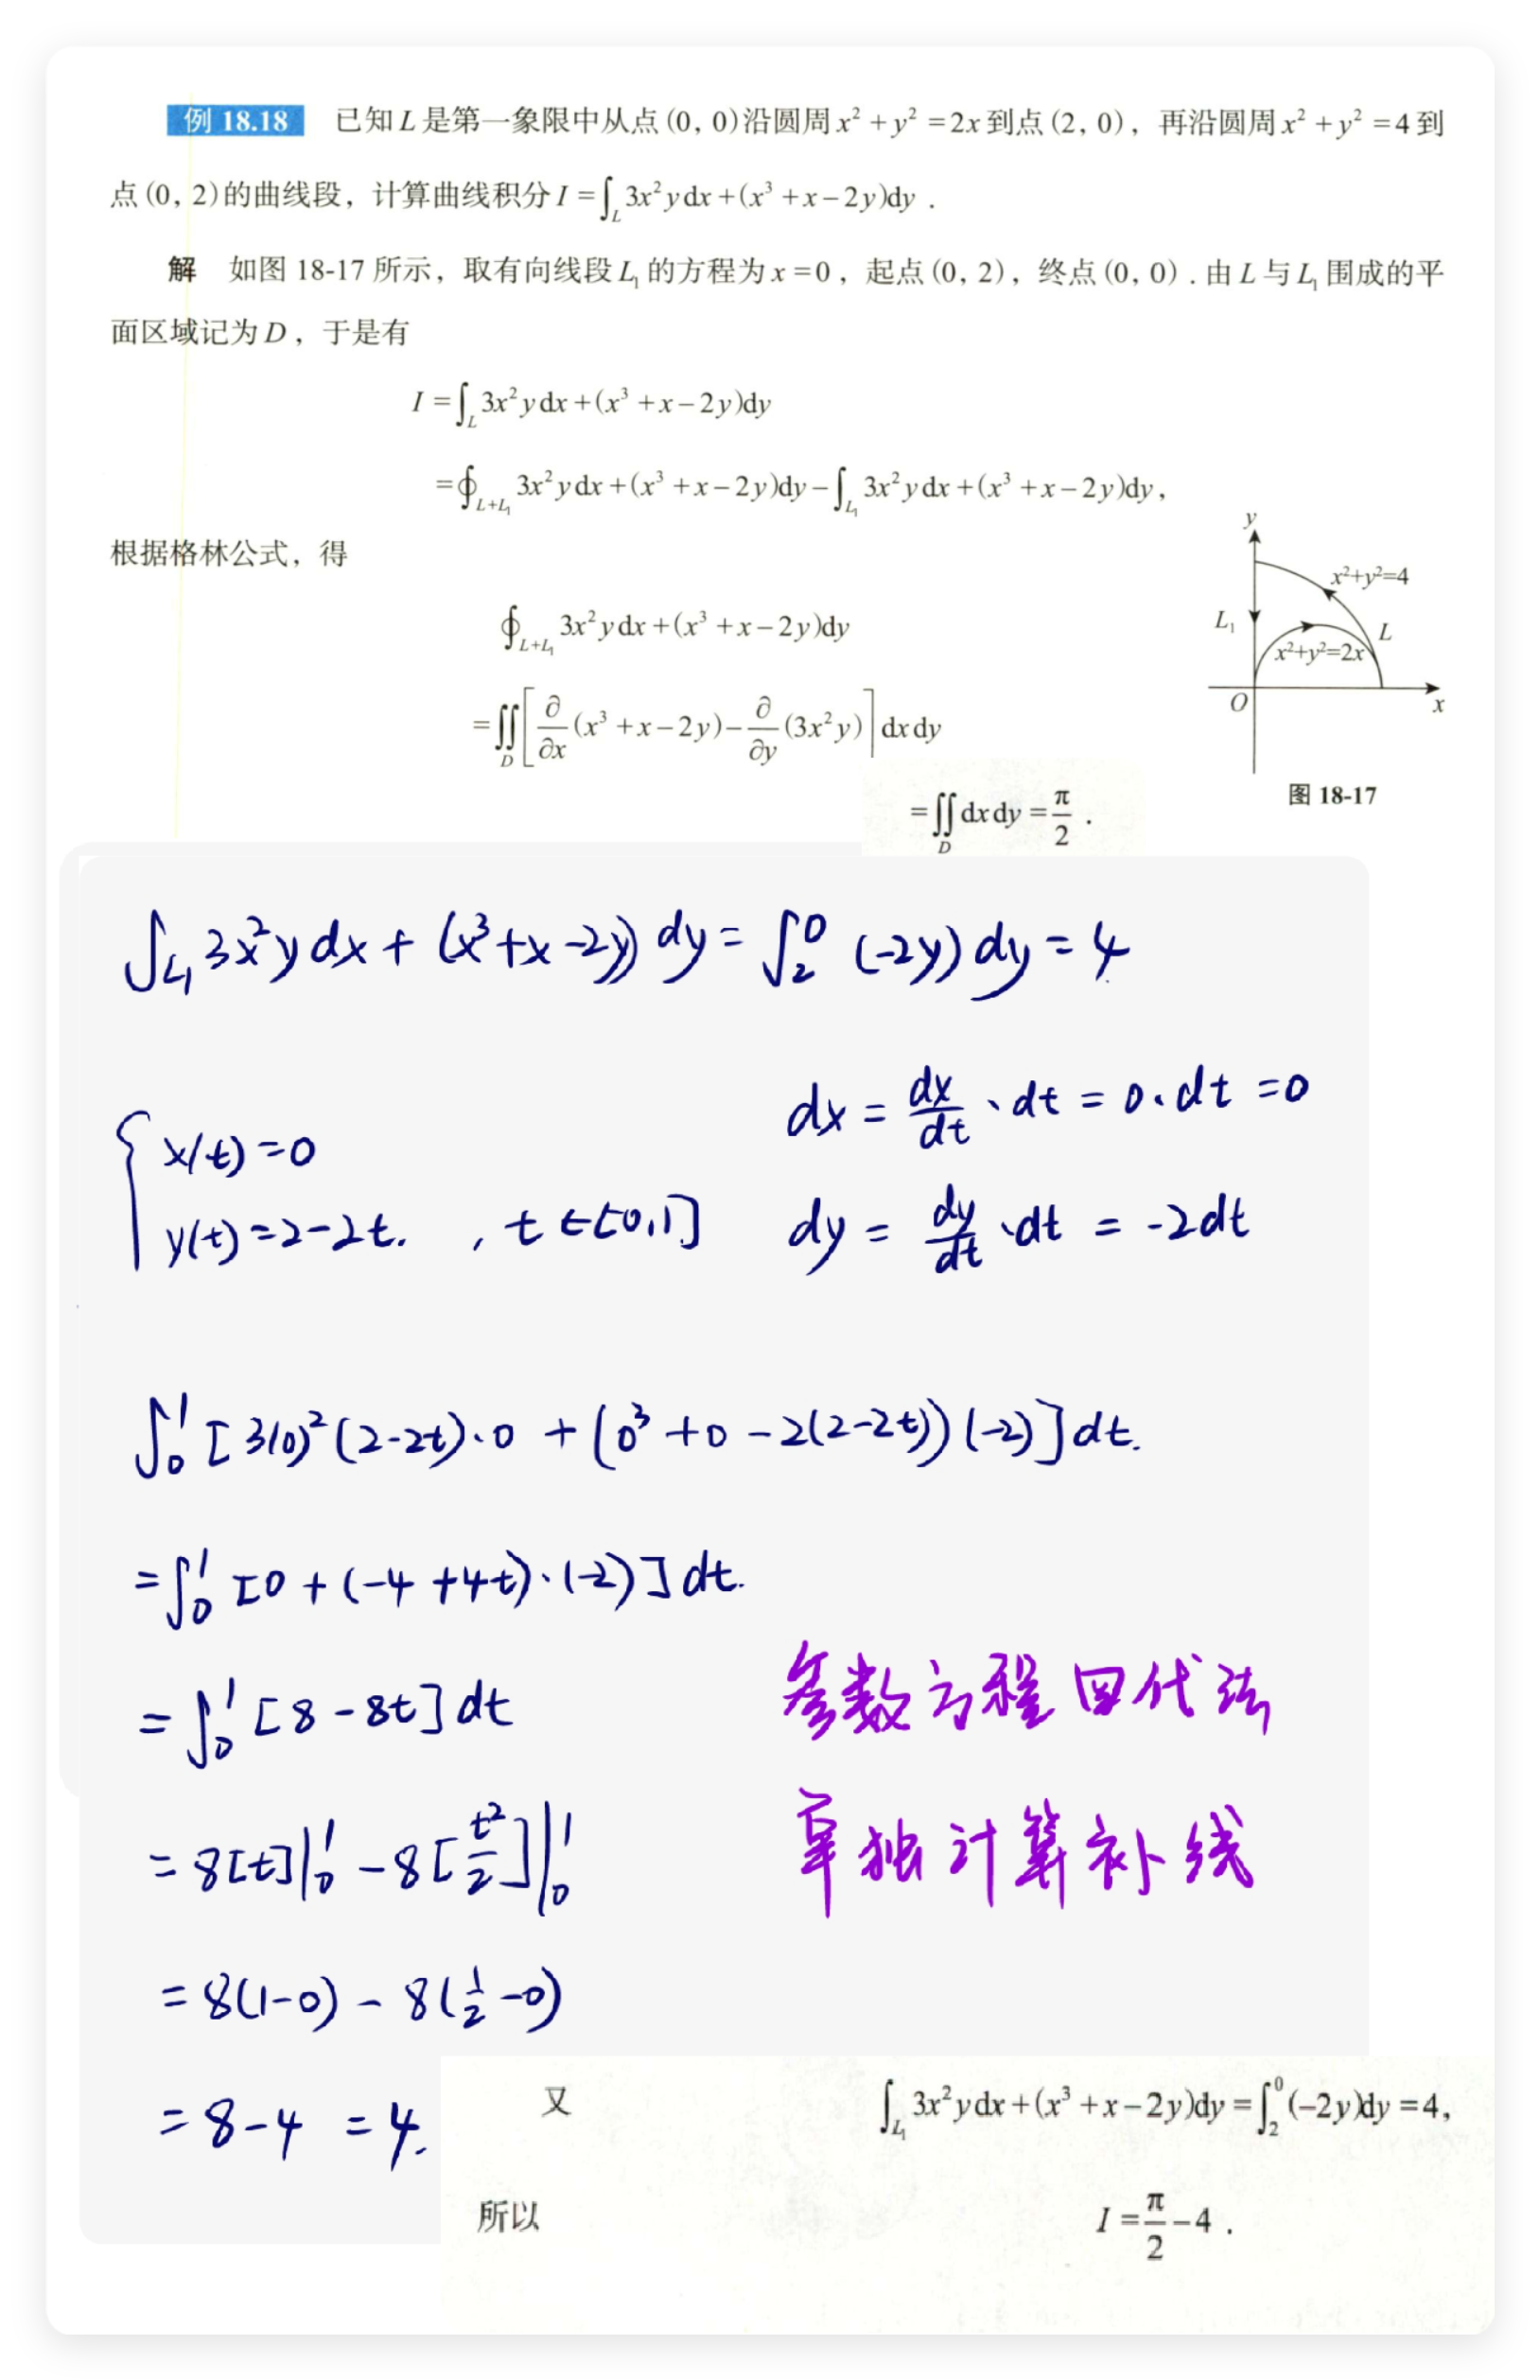 例 18.18 已知 L 是第一象限中从点 (0, 0) 沿圆周 x² + y² = 2x 到点 (2, 0)，再沿圆周 x² + y² = 4 到
点 (0, 2) 的曲线段，计算曲线积分 I = ∫_L 3x²ydx + (x³ + x − 2y)dy .
解 如图 18-17 所示，取有向线段 L₁ 的方程为 x = 0，起点 (0, 2)，终点 (0, 0) . 由 L 与 L₁ 围成的平
面区域记为 D，于是有
I = ∫_L 3x²ydx + (x³ + x − 2y)dy
= ∮_{L+L₁} 3x²ydx + (x³ + x − 2y)dy − ∫_{L₁} 3x²ydx + (x³ + x − 2y)dy,
根据格林公式，得
∮_{L+L₁} 3x²ydx + (x³ + x − 2y)dy
= ∬_D [∂/∂x (x³ + x − 2y) − ∂/∂y (3x²y)] dxdy
= ∬_D dxdy = π/2 .
y
x²+y²=4
L₁
L
x²+y²=2x
O
x
图 18-17
∫_{L₁} 3x²ydx + (x³+x−2y) dy = ∫₂⁰ (−2y) dy = 4
{ x(t) = 0
y(t) = 2−2t. , t ∈ [0,1]
dx = dx/dt · dt = 0 · dt = 0
dy = dy/dt · dt = −2dt
∫₀¹ [3(0)²(2−2t)·0 + (0³ + 0 − 2(2−2t))(−2)] dt.
= ∫₀¹ [0 + (−4 + 4t)·(−2)] dt.
= ∫₀¹ [8 − 8t] dt
= 8[t]|₀¹ − 8[t²/2]|₀¹
= 8(1−0) − 8(1/2 −0)
= 8−4 = 4.
参数方程回代法
单独计算补线
又 ∫_{L₁} 3x²ydx + (x³ + x − 2y)dy = ∫₂⁰ (−2y)dy = 4,
所以 I = π/2 − 4 .